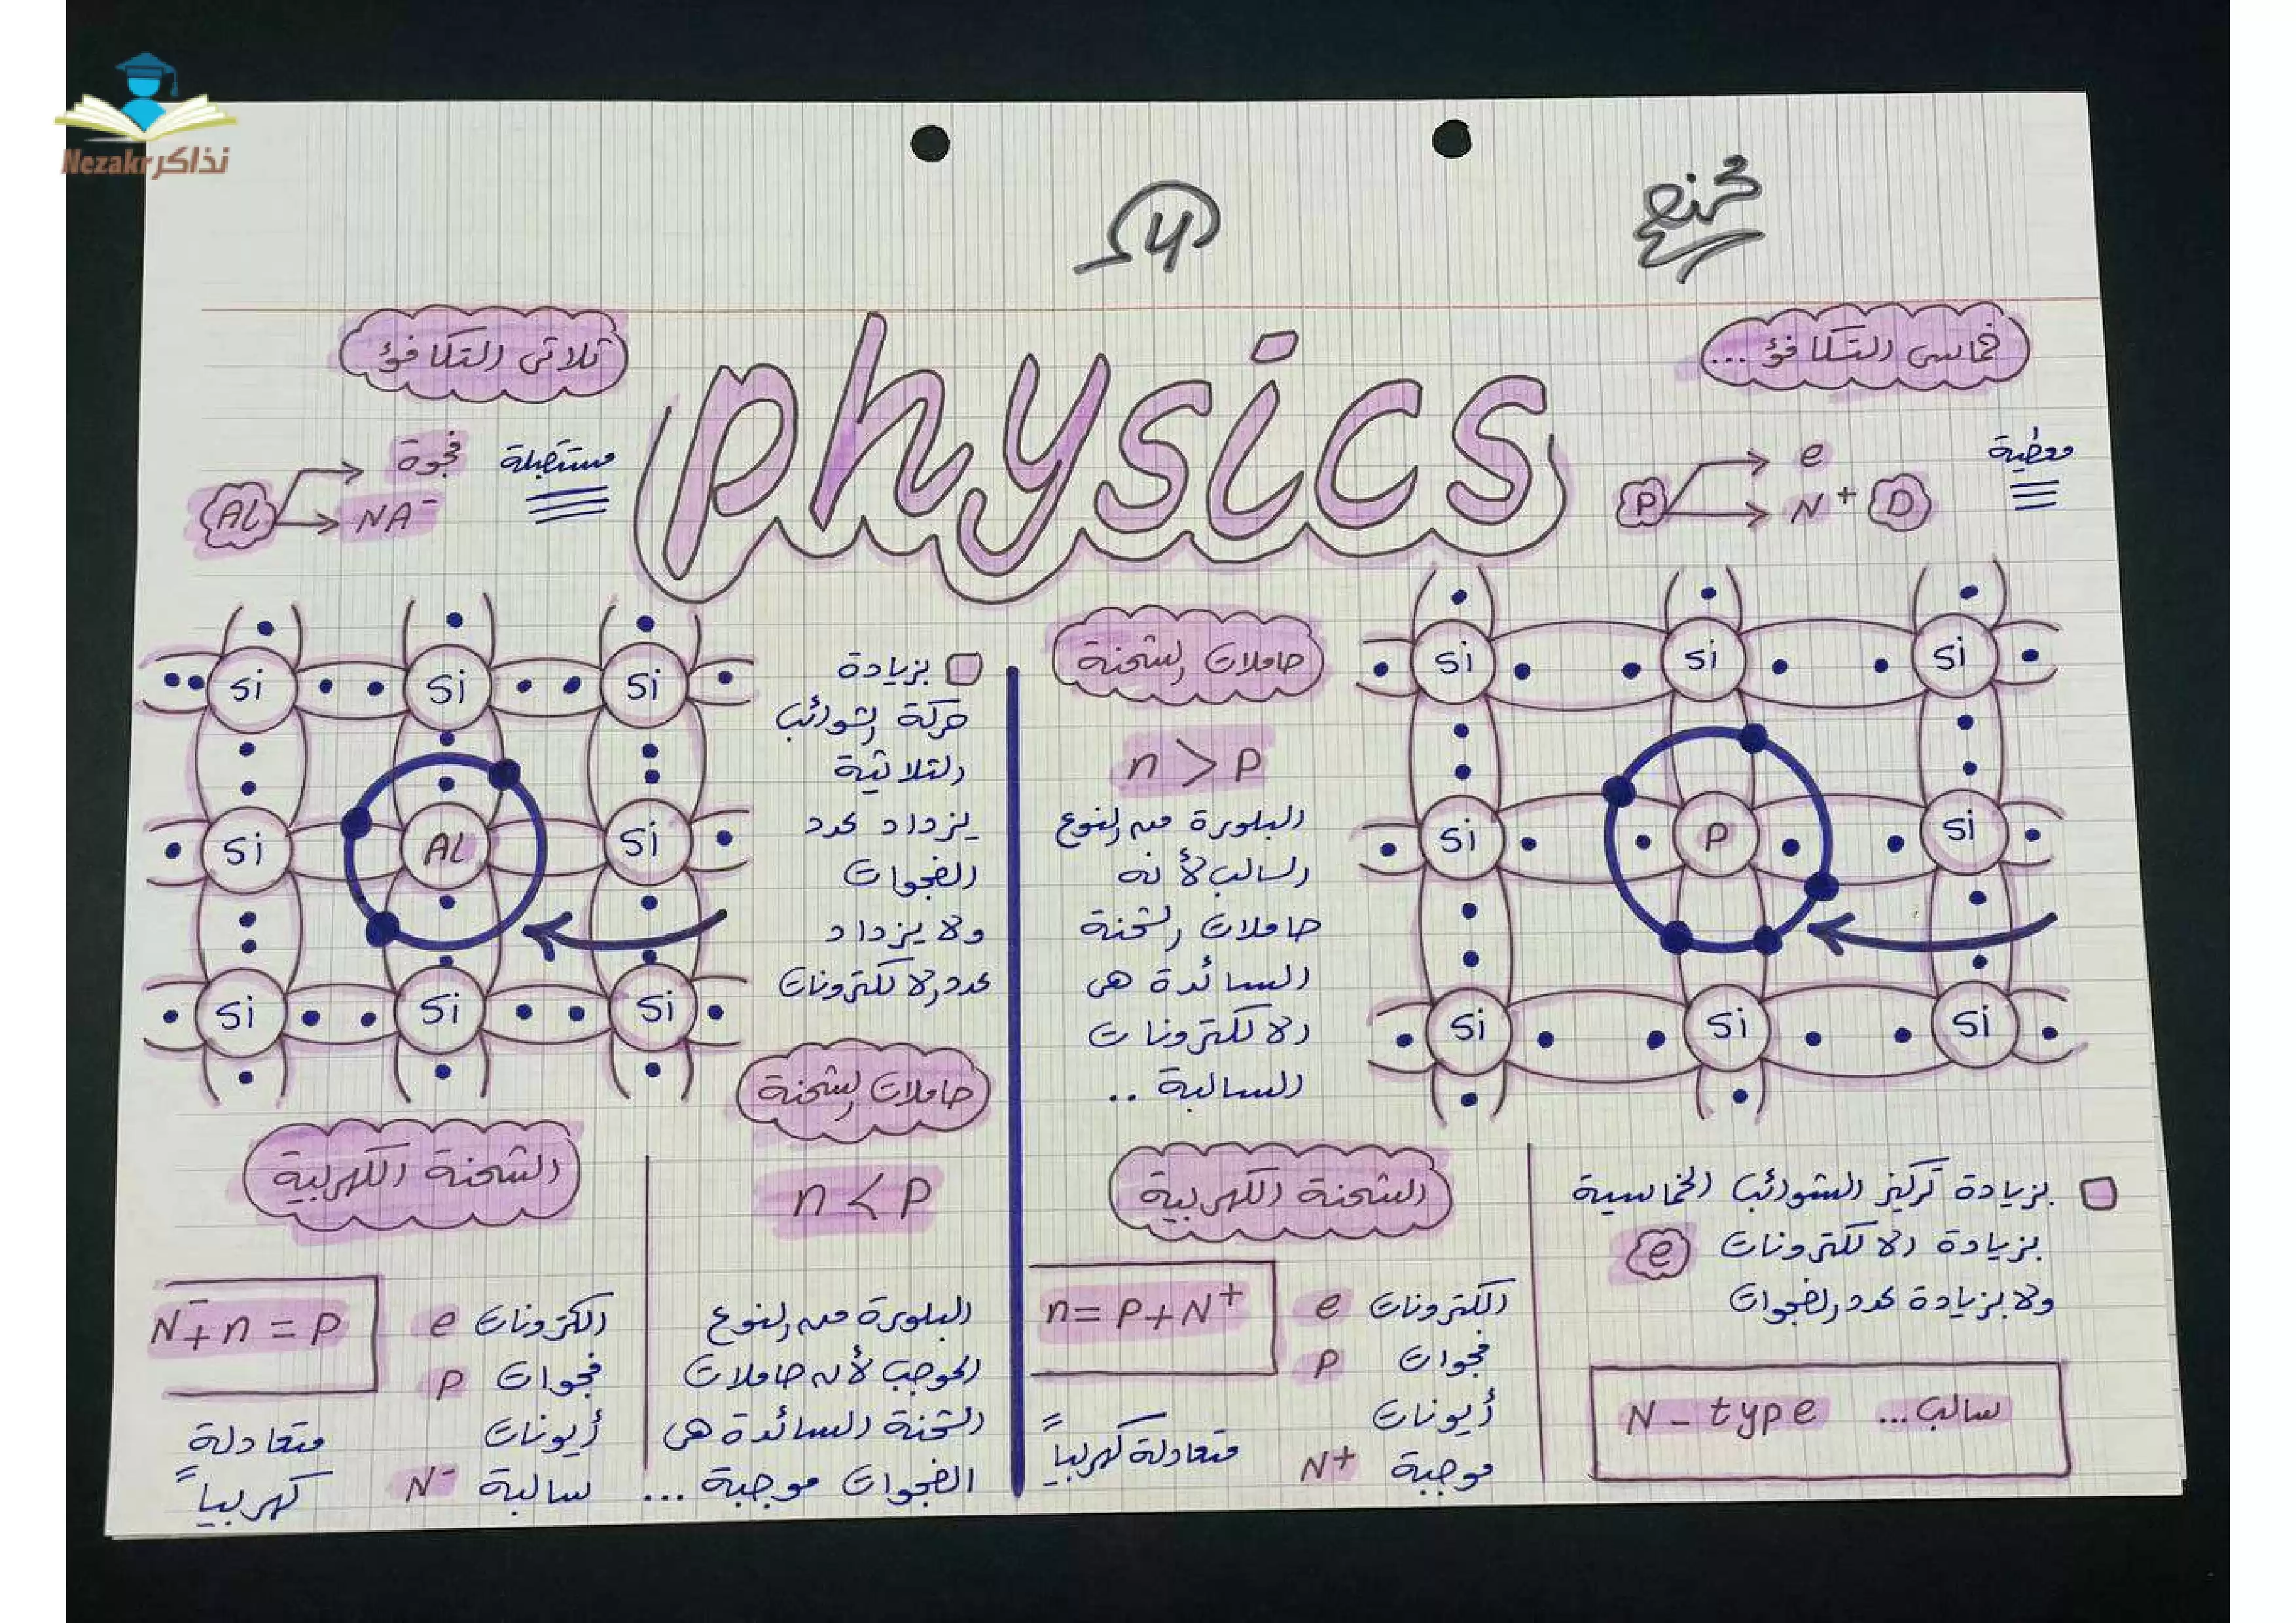 Nezakr نذاكر
physics
خماسى التكافؤ ...
معطية
P
e
N+ D
Si Si Si
Si P Si
Si Si Si
حاملات الشحنة
n > P
البلورة من النوع
السالب لأنه
حاملات الشحنة
السائدة هى
الالكترونات
السالبة ..
بزيادة تركيز الشوائب الخماسية
بزيادة الالكترونات e
ولا بزيادة عدد الفجوات
N - type سالب...
الشحنة الكهربية
n = P + N+
الكترونات e
فجوات P
أيونات
موجبة N+
متعادلة كهربياً
ثلاثى التكافؤ
مستقبلة
AL
فجوة
NA-
Si Si Si
Si AL Si
Si Si Si
بزيادة
حركة الشوائب
الثلاثية
يزداد عدد
الفجوات
ولا يزداد
عدد الالكترونات
حاملات الشحنة
n < P
البلورة من النوع
الموجب لأن حاملات
الشحنة السائدة هى
الفجوات موجبة ...
الشحنة الكهربية
N- + n = P
الكترونات e
فجوات P
أيونات
سالبة N-
متعادلة
كهربياً